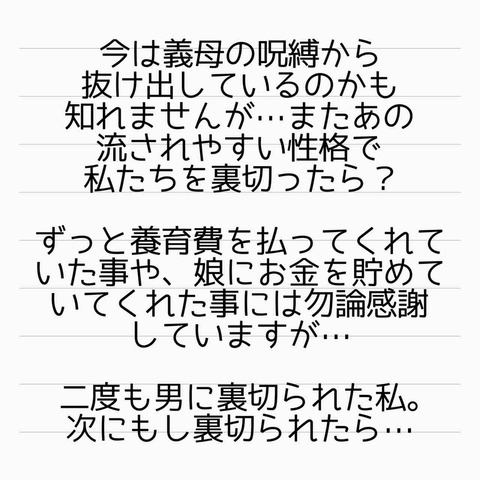 今は義母の呪縛から
抜け出しているのかも
知れませんが…またあの
流されやすい性格で
私たちを裏切ったら？
ずっと養育費を払ってくれて
いた事や、娘にお金を貯めて
いてくれた事には勿論感謝
していますが…
二度も男に裏切られた私。
次にもし裏切られたら…